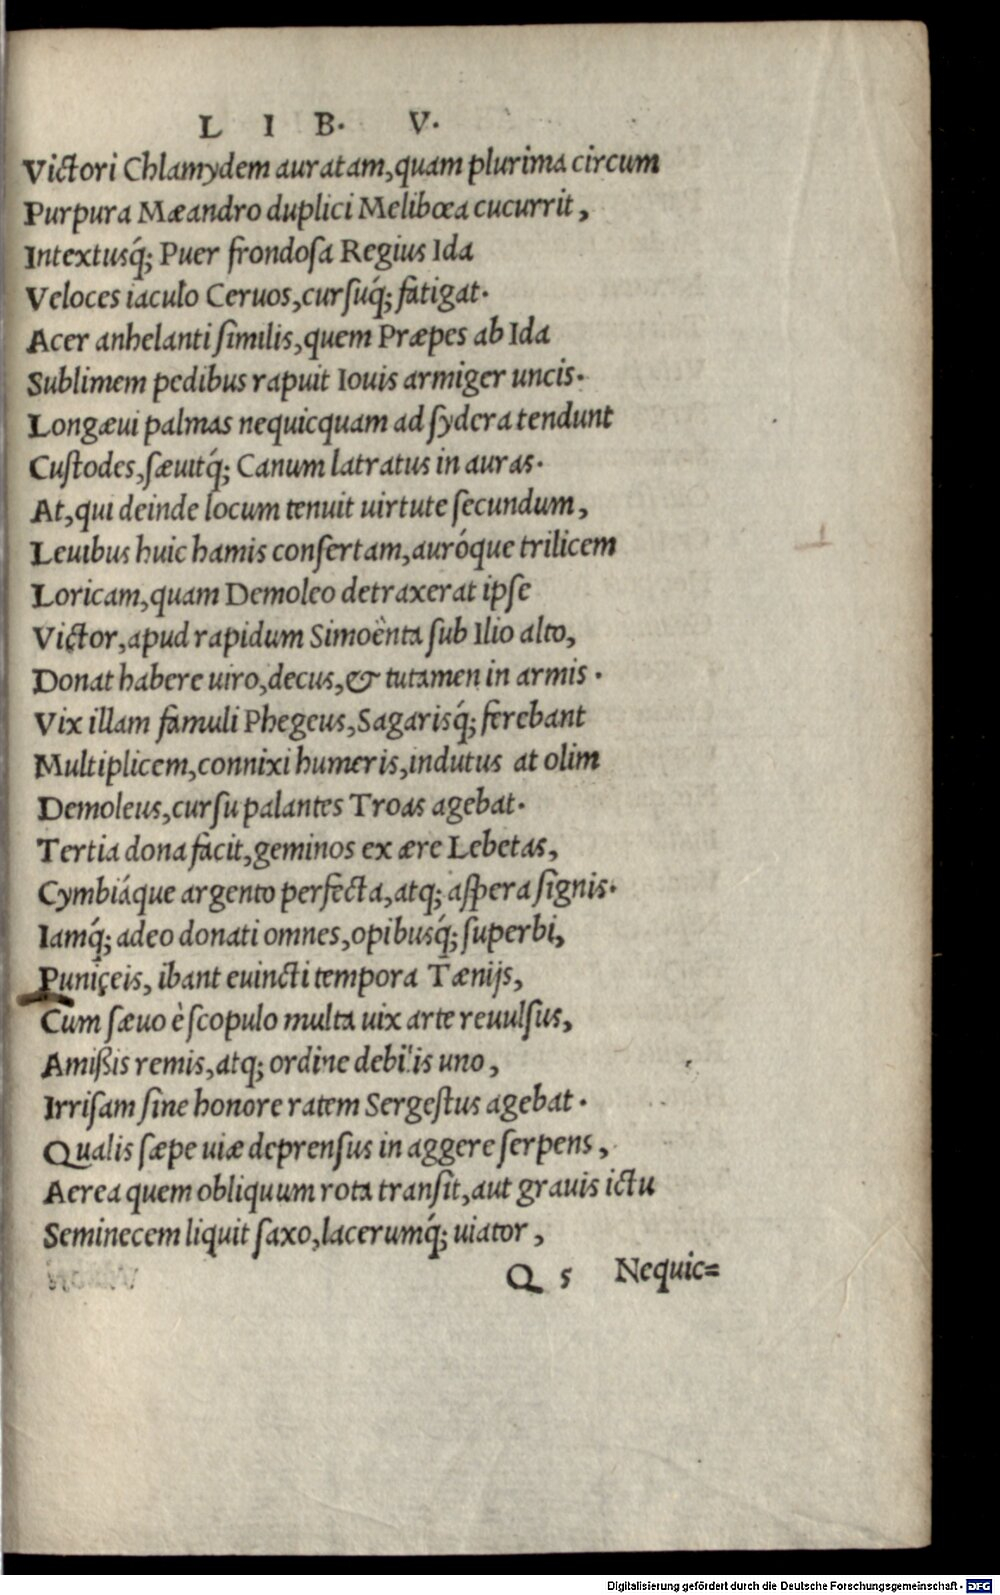 LIB. V.
Victori Chlamydem auratam, quam plurima circum
Purpura Mæandro duplici Melibœa cucurrit,
Intextusq́; Puer frondosa Regius Ida
Veloces iaculo Ceruos, cursuq́; fatigat.
Acer anhelanti similis, quem Præpes ab Ida
Sublimem pedibus rapuit Iouis armiger uncis.
Longæui palmas nequicquam ad sydera tendunt
Custodes, sæuitq́; Canum latratus in auras.
At, qui deinde locum tenuit uirtute secundum,
Leuibus huic hamis consertam, auróque trilicem
Loricam, quam Demoleo detraxerat ipse
Victor, apud rapidum Simoënta sub Ilio alto,
Donat habere uiro, decus, & tutamen in armis.
Vix illam famuli Phegeus, Sagarisq́; ferebant
Multiplicem, connixi humeris, indutus at olim
Demoleus, cursu palantes Troas agebat.
Tertia dona facit, geminos ex ære Lebetas,
Cymbiáque argento perfecta, atq; aspera signis.
Iamq́; adeo donati omnes, opibusq́; superbi,
Puniçeis, ibant euincti tempora Tænijs,
Cum sæuo è scopulo multa uix arte reuulsus,
Amißis remis, atq; ordine debilis uno,
Irrisam sine honore ratem Sergestus agebat.
Qualis sæpe uiæ deprensus in aggere serpens,
Aerea quem obliquum rota transit, aut grauis ictu
Seminecem liquit saxo, lacerumq́; uiator,
Q 5 Nequic=
Digitalisierung gefördert durch die Deutsche Forschungsgemeinschaft - DFG